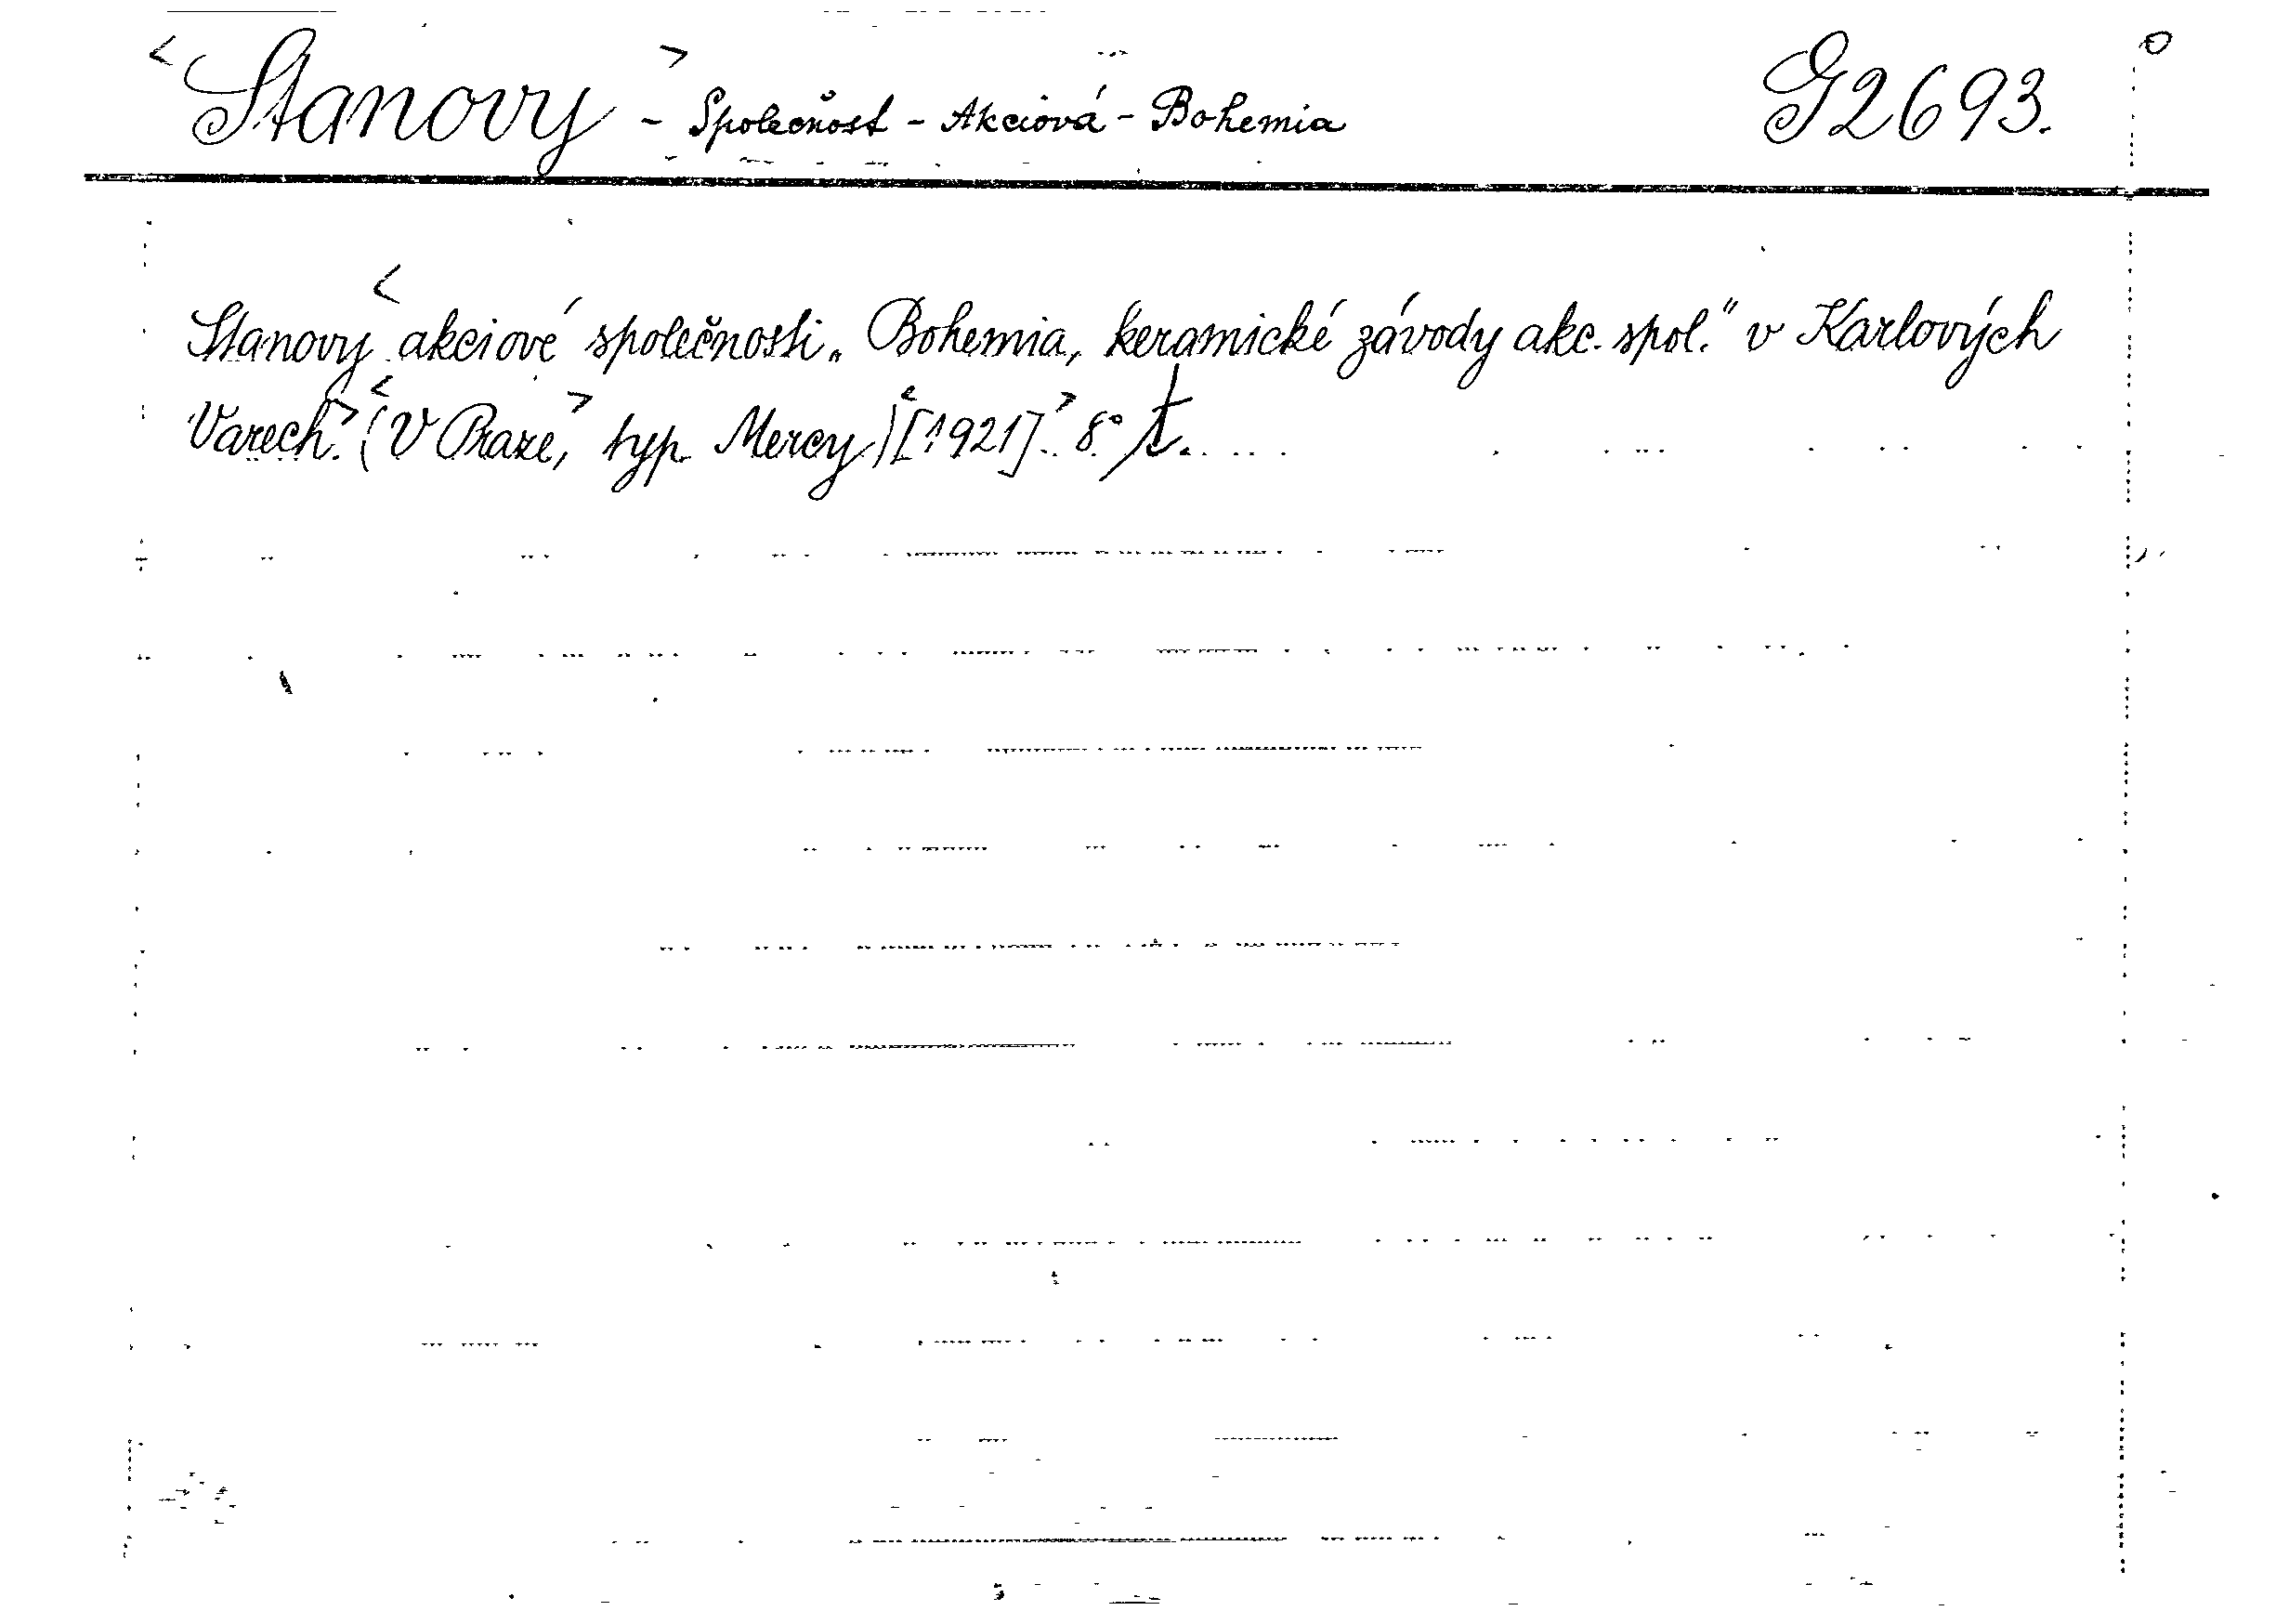 <Stanovy> - Společnost - Akciová - Bohemia G2693.
Stanovy <akciové společnosti „Bohemia, keramické závody akc. spol." v Karlových
Varech.> <(V Praze,> typ. Mercy) <[1921].> 8° t.